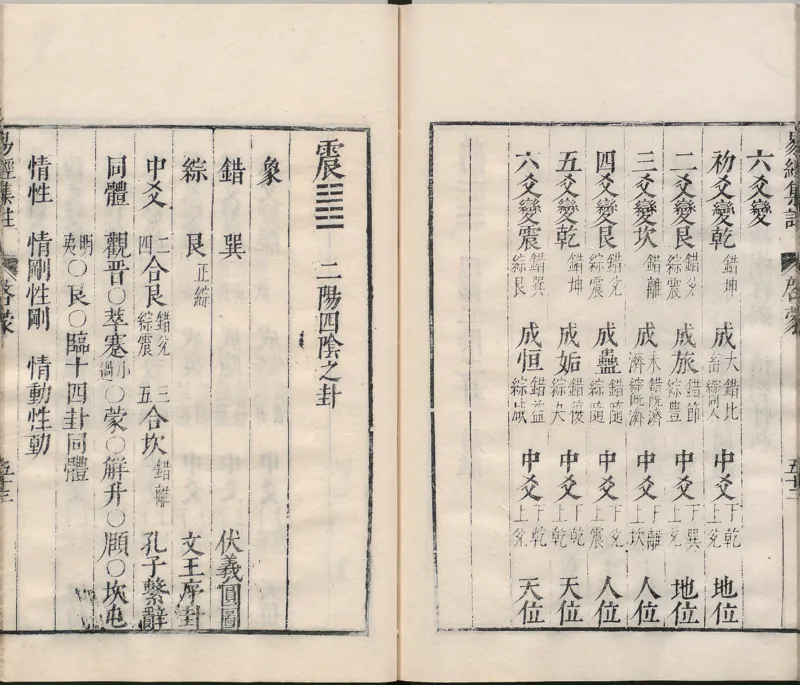 易經集註 啓蒙 五十二
六爻變
初爻變乾 錯坤 成大畜 錯比綜同人 中爻 下乾上兌 地位
二爻變艮 錯兌綜震 成旅 錯節綜豐 中爻 下巽上兌 地位
三爻變坎 錯離 成未濟 錯既濟綜既濟 中爻 下離上坎 人位
四爻變艮 錯兌綜震 成蠱 錯隨綜隨 中爻 下兌上震 人位
五爻變乾 錯坤 成姤 錯復綜夬 中爻 下乾上乾 天位
六爻變震 錯巽綜艮 成恒 錯益綜咸 中爻 下乾上兌 天位
震 二陽四陰之卦
象
錯 巽 伏羲圓圖
綜 艮 正綜 文王序卦
中爻 二四合艮 錯兌綜震 三五合坎 錯離 孔子繫辭
同體 觀晉○萃蹇小過○蒙○解升○頤○坎屯
明夷○艮○臨十四卦同體
情性 情剛性剛 情動性動
易經集註 啓蒙 五十三